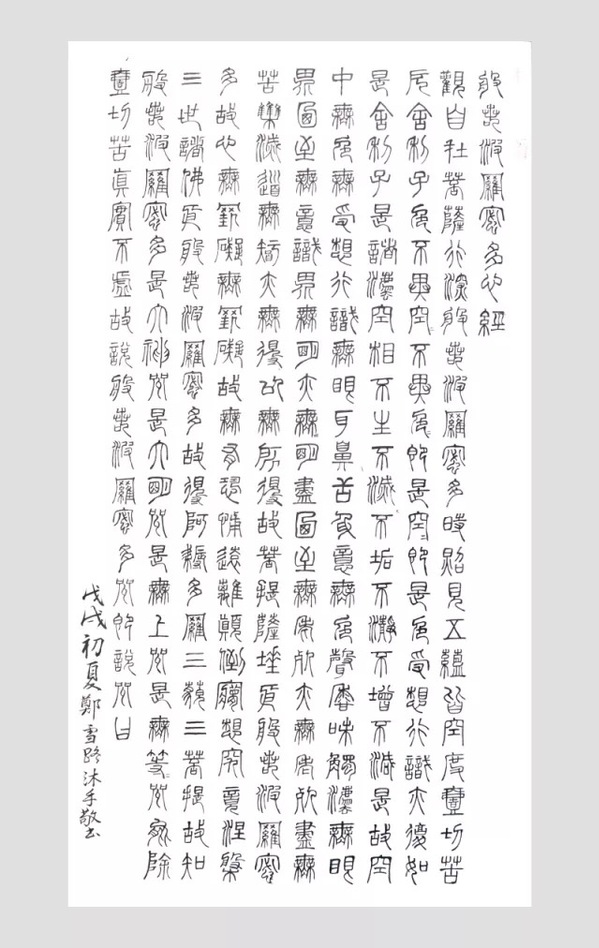 般若波羅蜜多心經
觀自在菩薩行深般若波羅蜜多時照見五蘊皆空度壹切苦
厄舍利子色不異空〻不異色〻即是空〻即是色受想行識亦復如
是舍利子是諸法空相不生不滅不垢不淨不增不減是故空
中無色無受想行識無眼耳鼻舌身意無色聲香味觸法無眼
界乃至無意識界無〻明亦無〻明盡乃至無老死亦無老死盡無
苦集滅道無智亦無得以無所得故菩提薩埵依般若波羅蜜
多故心無罣礙無罣礙故無有恐怖遠離顛倒夢想究竟涅槃
三世諸佛依般若波羅蜜多故得阿耨多羅三藐三菩提故知
般若波羅蜜多是大神咒是大明咒是無上咒是無等〻咒能除
壹切苦真實不虛故說般若波羅蜜多咒即說咒曰
戊戌初夏鄭雪路沐手敬書